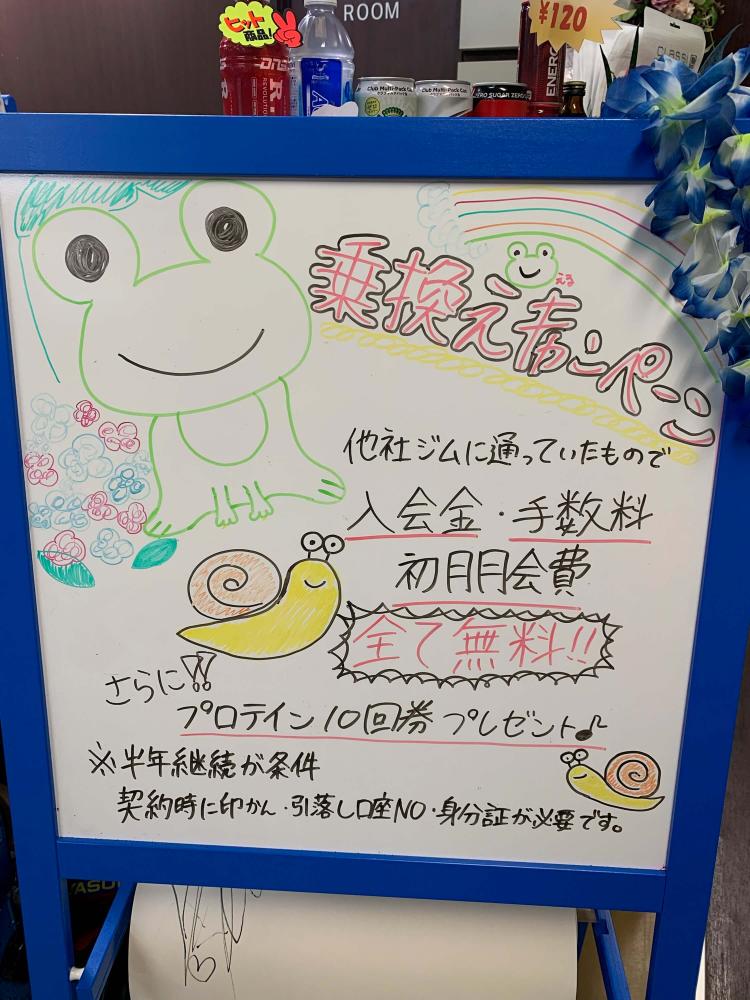 ROOM
ヒット
商品!
¥120
ENERG
CLASSI
DNS
R
REVOLUTION
Club Multi-Pack Can
Club Multi-Pack Can
ZERO SUGAR ZERO
乗換えキャンペーン
える
他社ジムに通っていたもので
入会金・手数料
初月月会費
全て無料!!
さらに!!
プロテイン10回券プレゼント♪
※半年継続が条件
契約時に印かん・引落し口座NO・身分証が必要です。